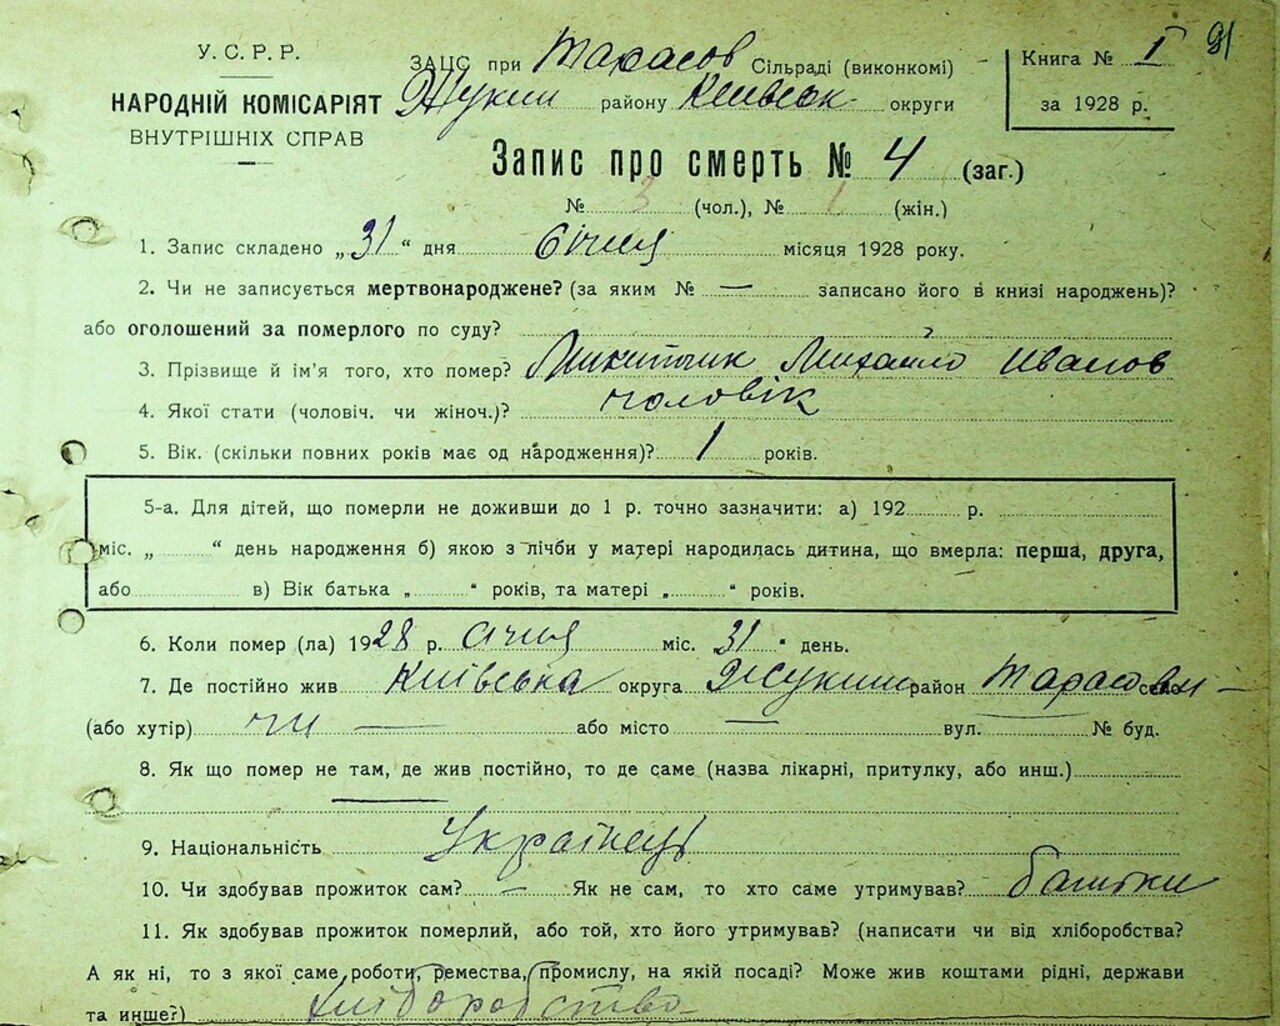 91
У. С. Р. Р.
НАРОДНІЙ КОМІСАРІЯТ
ВНУТРІШНІХ СПРАВ
ЗАЦС при Тарасов Сільраді (виконкомі)
Жукин району Київськ округи
Книга № I
за 1928 р.
Запис про смерть № 4 (заг.)
№ 3 (чол.), № 1 (жін.)
1. Запис складено „31“ дня Січня місяця 1928 року.
2. Чи не записується мертвонароджене? (за яким № — записано його в книзі народжень)?
або оголошений за померлого по суду?
3. Прізвище й ім'я того, хто помер? Микитчик Михайло Иванов
4. Якої стати (чоловіч. чи жіноч.)? чоловік
5. Вік. (скільки повних років має од народження)? 1 років.
5-а. Для дітей, що померли не доживши до 1 р. точно зазначити: а) 192 р.
міс. „ “ день народження б) якою з лічби у матері народилась дитина, що вмерла: перша, друга,
або в) Вік батька „ “ років, та матері „ “ років.
6. Коли помер (ла) 1928 р. січня міс. 31 “ день.
7. Де постійно жив Київська округа Жукин район Тарасови- село
(або хутір) чи — або місто — вул. № буд.
8. Як що помер не там, де жив постійно, то де саме (назва лікарні, притулку, або инш.)
—
9. Національність Українець
10. Чи здобував прожиток сам? — Як не сам, то хто саме утримував? батьки
11. Як здобував прожиток померлий, або той, хто його утримував? (написати чи від хліборобства?
А як ні, то з якої саме роботи, ремества, промислу, на якій посаді? Може жив коштами рідні, держави
та инше?) Хліборобство